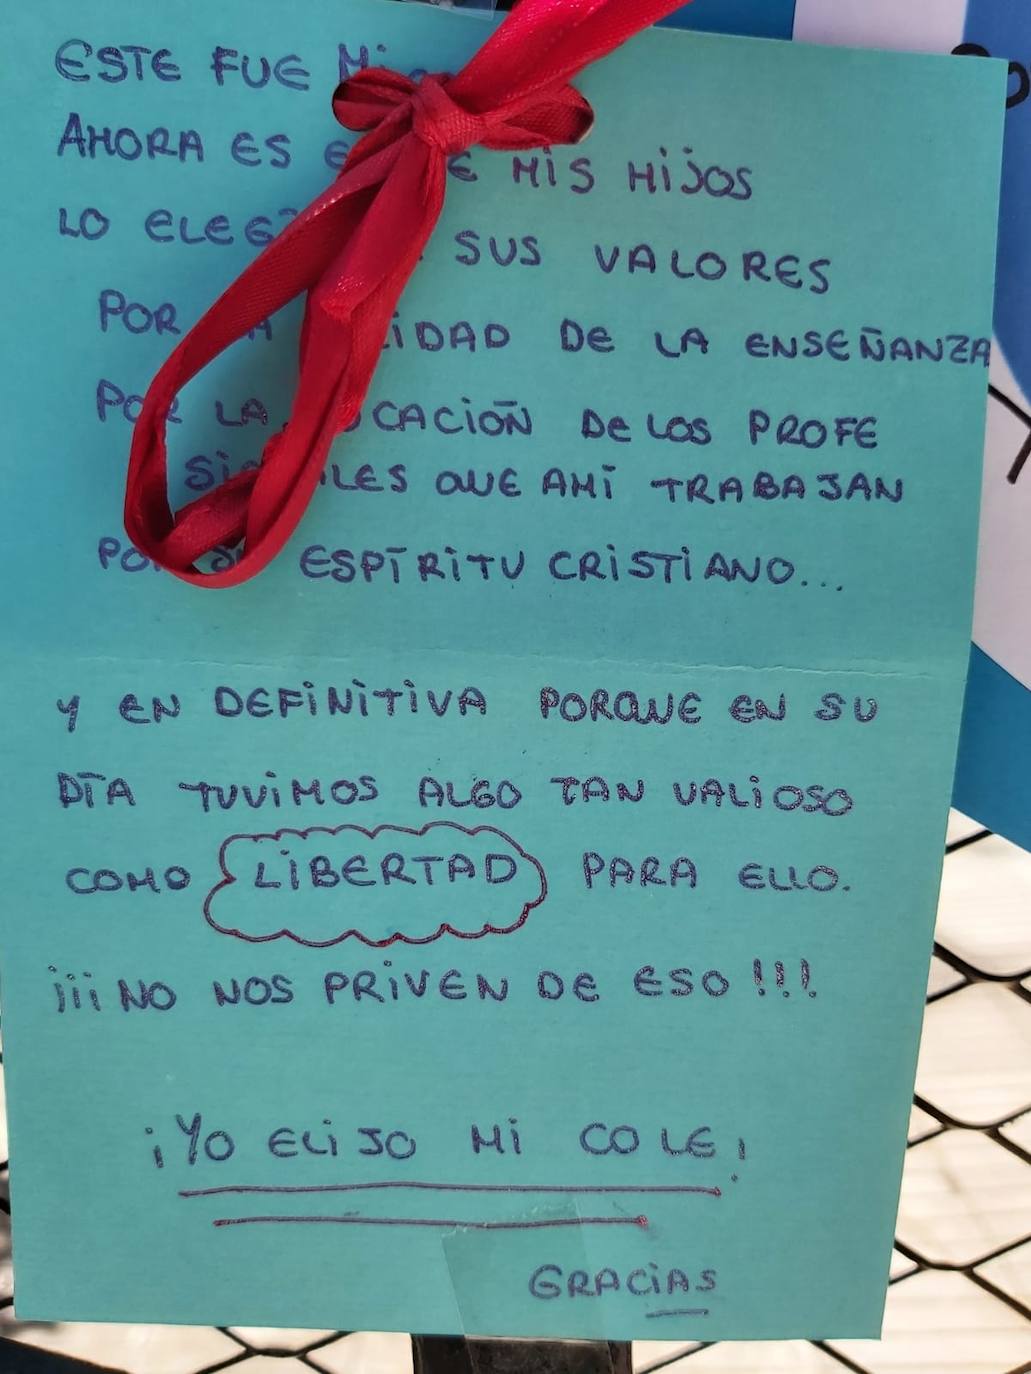 ESTE FUE
AHORA ES MIS HIJOS
LO SUS VALORES
POR DE LA ENSEÑANZA
POR LA DE LOS PROFE
QUE AHÍ TRABAJAN
ESPÍRITU CRISTIANO...
Y EN DEFINITIVA PORQUE EN SU
DÍA TUVIMOS ALGO TAN VALIOSO
COMO LIBERTAD PARA ELLO.
¡¡¡NO NOS PRIVEN DE ESO!!!
¡YO ELIJO MI COLE!
GRACIAS